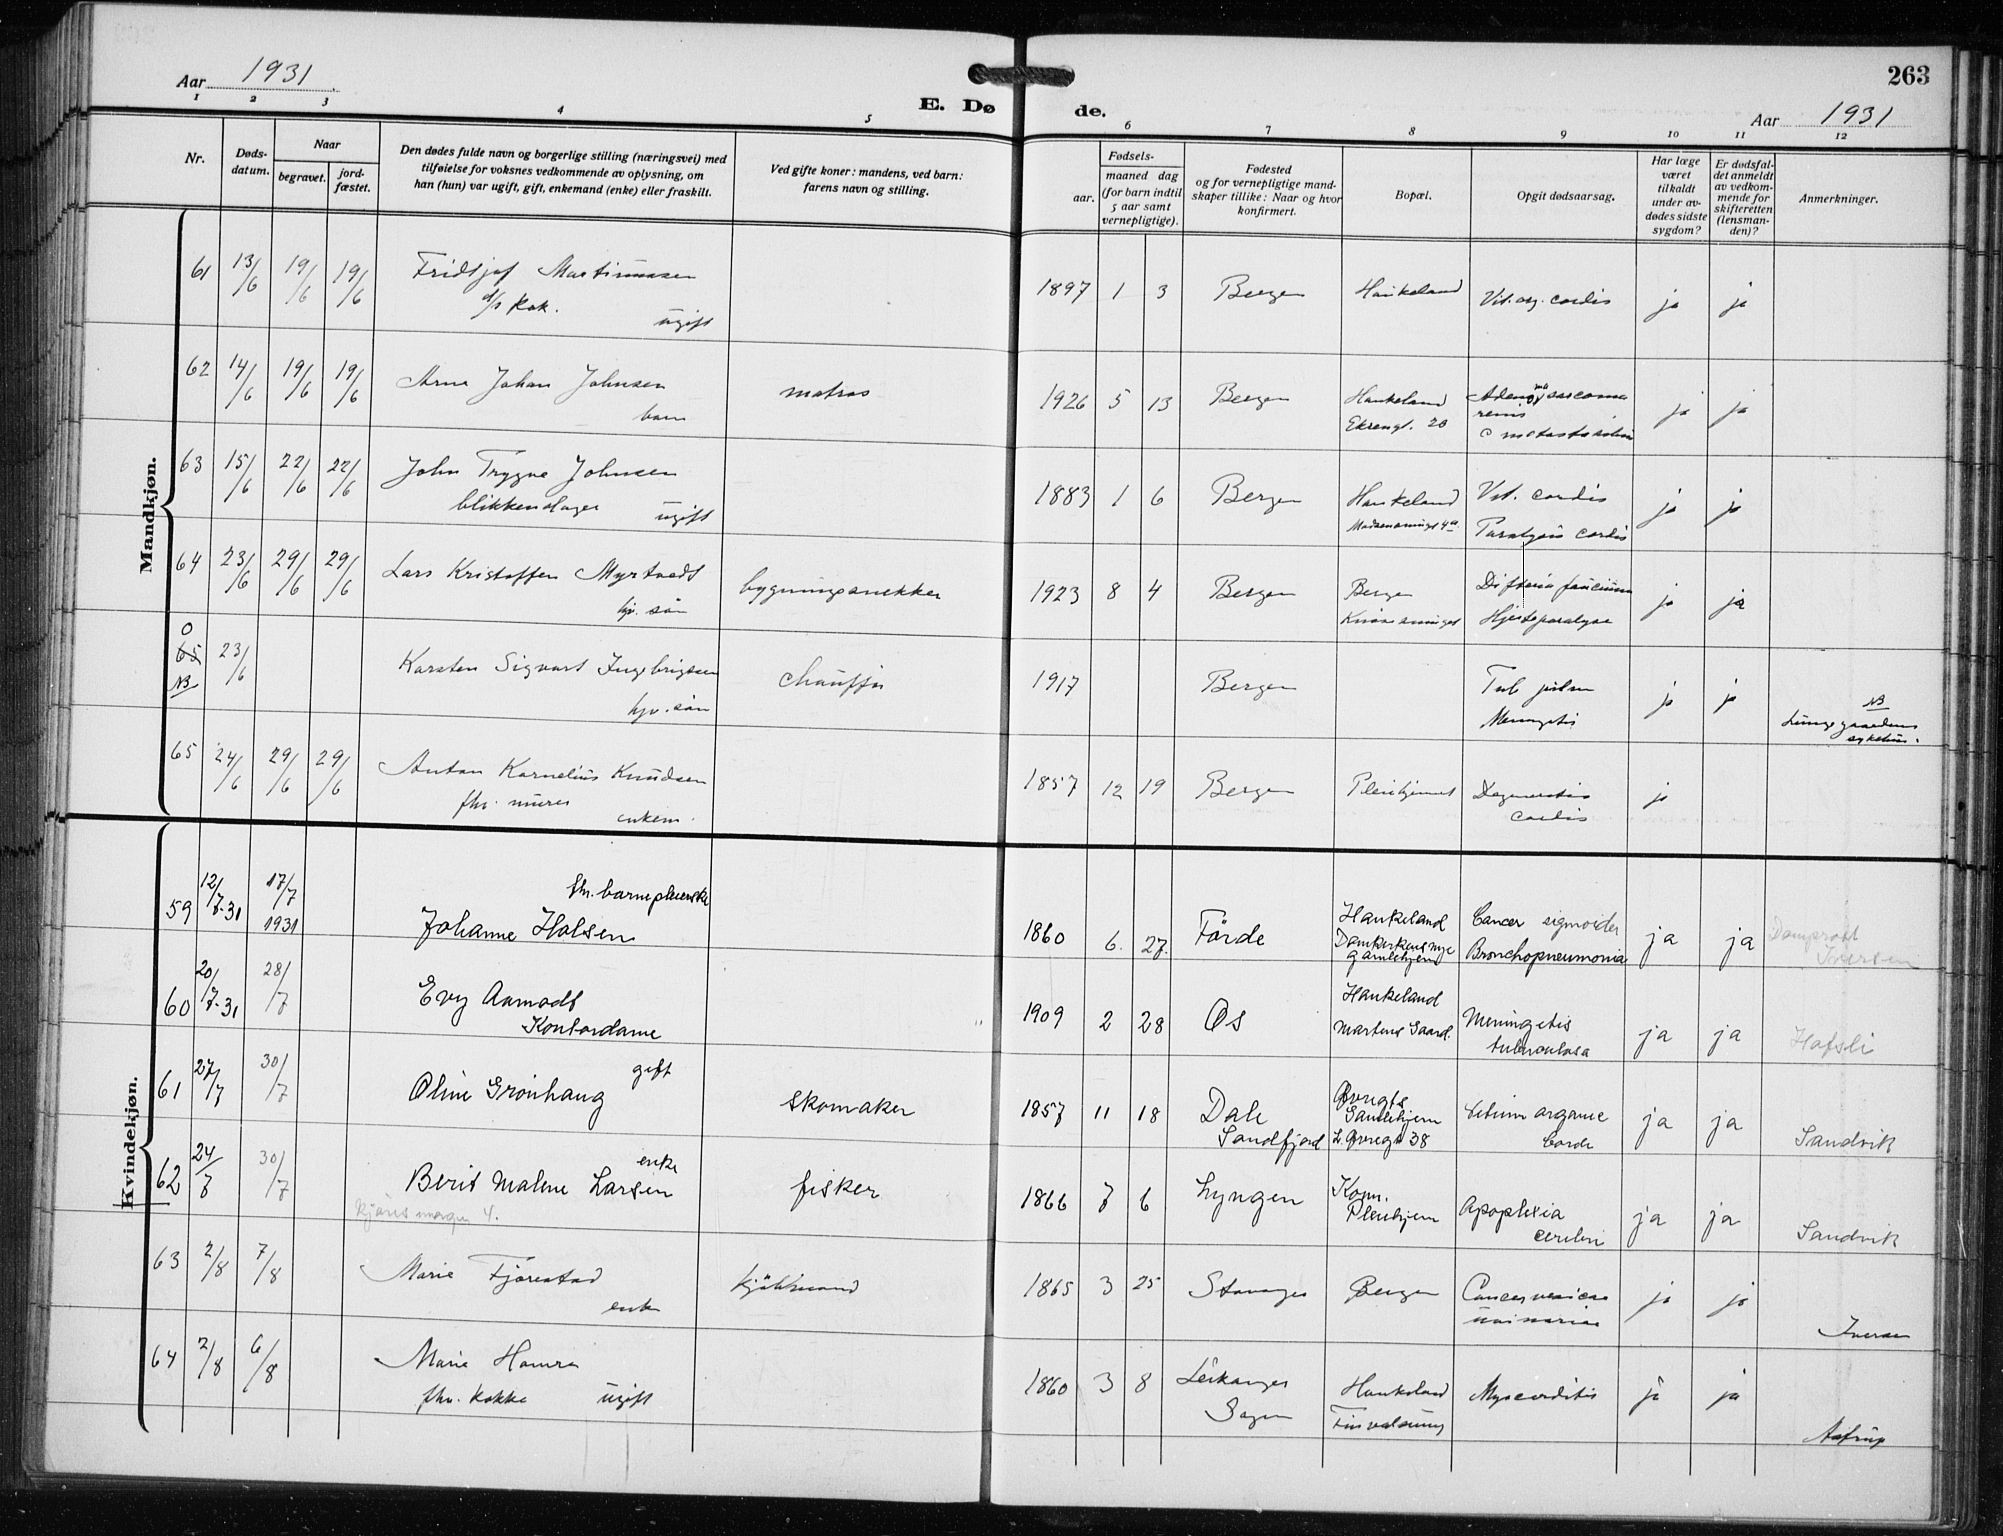 Aar 1931
E. Dø
de.
263
Aar 1931
1 2 3 4 5 6 7 8 9 10 11 12
Nr.
Døds-
datum.
Naar
begravet.
jord-
fæstet.
Den dødes fulde navn og borgerlige stilling (næringsvei) med
tilføielse for voksnes vedkommende av oplysning, om
han (hun) var ugift, gift, enkemand (enke) eller fraskilt.
Ved gifte koner: mandens, ved barn:
farens navn og stilling.
Fødsels-
aar.
maaned dag
(for barn indtil
5 aar samt
vernepligtige).
Fødested
og for vernepligtige mand-
skaper tillike: Naar og hvor
konfirmert.
Bopæl.
Opgit dødsaarsag.
Har læge
været
tilkaldt
under av-
dødes sidste
sygdom?
Er dødsfal-
det anmeldt
av vedkom-
mende for
skifteretten
(lensman-
den)?
Anmerkninger.
Mandkjøn.
61 13/6 19/6 19/6 Fridtjof Martinussen 1897 1 3 Bergen Haukeland Vit. org. cordis ja ja
d/s kok.
ugift
62 14/6 19/6 19/6 Arne Johan Johnsen matros 1926 5 13 Bergen Haukeland Adenosarcoma ja ja
barn Ekrengt. 20 renis
63 15/6 22/6 22/6 John Trygve Johnsen 1883 1 6 Bergen Haukeland Vit. cordis ja ja
blikkenslager ugift Paralysis cordis
64 23/6 29/6 29/6 Lars Kristoffer Myrtvedt bygningssnekker 1923 8 4 Bergen Bergen Difteria faucium ja ja
hjv. søn Hjerteparalyse
0
65 23/6 Karsten Sigvart Ingebrigtsen chauffør 1917 Bergen Tub pulm ja ja NB
NB hjv. søn Meningitis Lungegaardens
sykehus.
65 24/6 29/6 29/6 Anton Kornelius Knudsen 1857 12 19 Bergen Pleiehjemmet Degeneratio ja
fhv. murer enkem. Cordis
Kvindekjøn.
59 12/7-31 17/7 1931 fhv. barnepleierske
Johanne Holsen 1860 6. 27. Førde Haukeland Cancer sigmoider ja ja Domprost
gamlehjem Bronchopneumonia Iversen
60 20/7-31 28/7 Evy Aamodt 1909 2 28 Os Haukeland Meningitis ja ja Hafsli
Kontordame Martens Gaard. tuberculosa
61 27/7 30/7 Oline Grönhaug gift skomaker 1857 11 18 Dale Gamlehjem Vitium organic ja ja Sandvik
Sandfjord L. Øvregt 38 Corde
62 24/7 30/7 Berit Malene Larsen enke fisker 1866 7 6 Lyngen Kom. Apoplexia ja ja Sandvik
4. Pleiehjem cerebri
63 2/8 7/8 Marie Fjørestad kjøbmand 1865 3 25 Stavanger Bergen Cancer vesicae ja ja Iversen
enke urinariae
64 2/8 6/8 Marie Hamre 1860 3 8 Leikanger Haukeland Myocarditis ja ja Astrup
fhv. kokke ugift Sogn